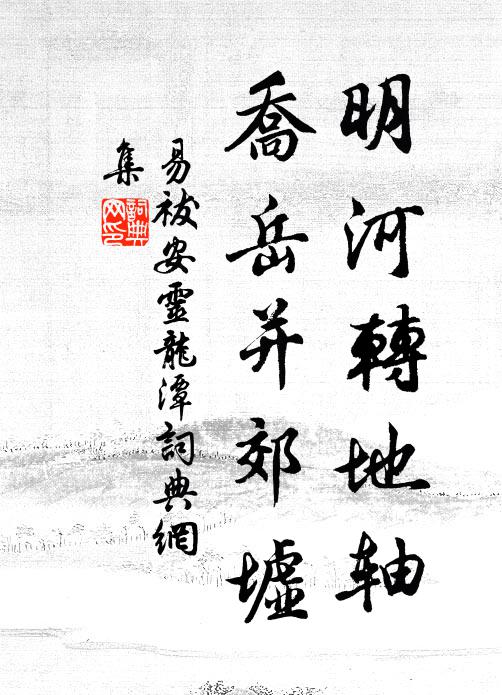 明河轉地轴
喬岳并郊墟
易祓安靈龍潭詞典網
集
詞典
网印